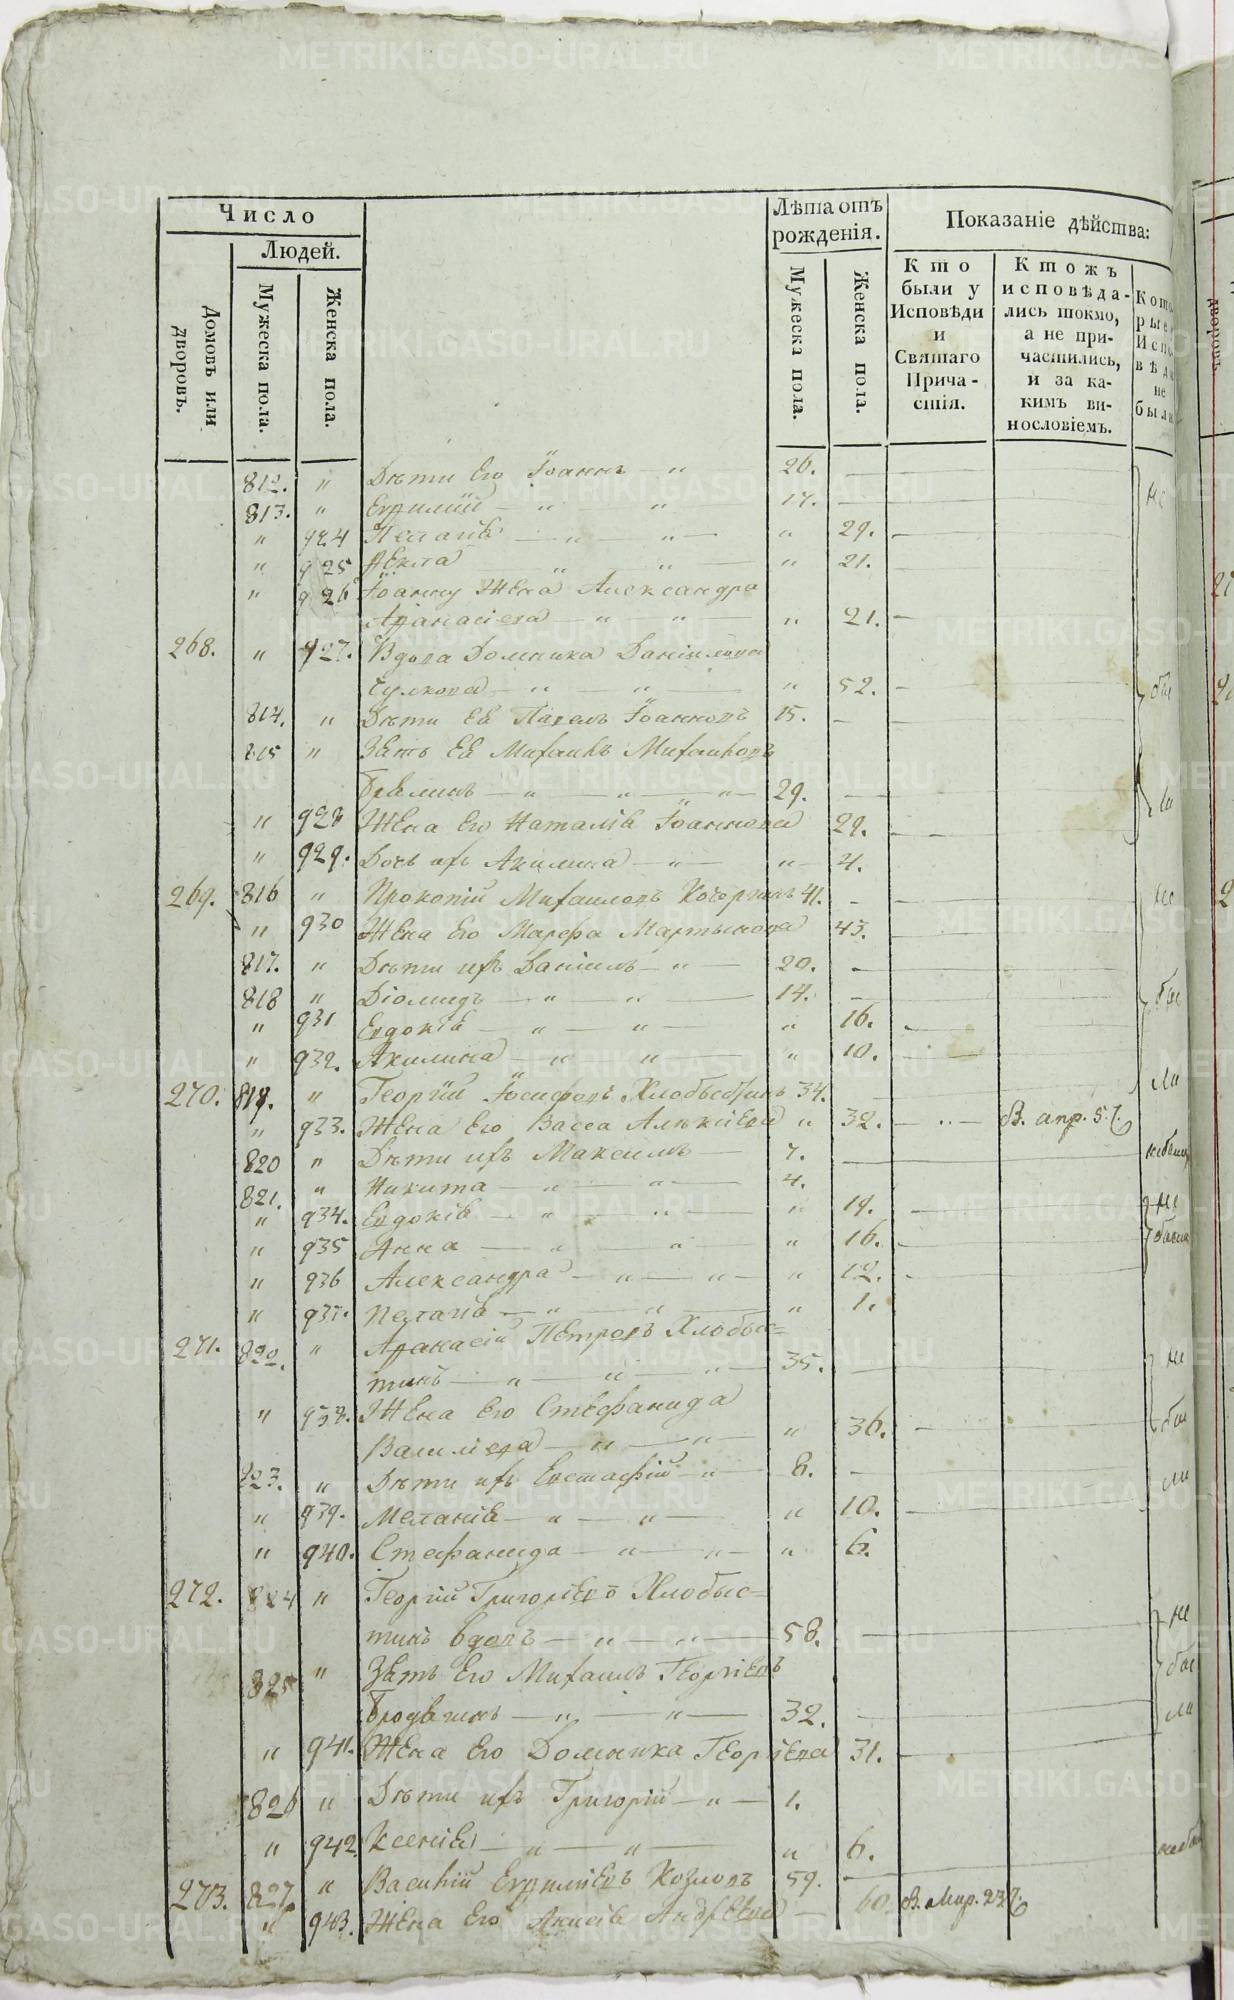 Число
Людей.
Домовъ или дворовъ.
Мужеска пола.
Женска пола.
Лѣта отъ рожденія.
Мужеска пола.
Женска пола.
Показаніе дѣйства:
Кто были у Исповѣди и Святаго Причастія.
Ктожъ исповѣдались токмо, а не причастились, и за какимъ винословіемъ.
Которые Испо вѣд не были
812. " Дѣти Его Іоаннъ — " 26. —
813. " Евфимій — " — " 17. —
" 924 Пелагія — " — " — " 29. —
" 925 Ѳекла — " — " — " 21.
" 926 Іоанну Жена Александра
Афанасіева — " — " — " 21. —
268. " 927. Вдова Домника Даніилова
— " — " — " 52. —
814. " Дѣти Ея Павелъ Іоанновъ 15. —
815 " Зять Ея Михаилъ Михаиловъ
— " — " — " — 29. —
" 928 Жена Его Наталія Іоаннова 29. —
" 929. Дочь ихъ Акилина — " — " — 4.
269. 816 " Прокопій Михаиловъ 41. —
" 930 Жена Его Марфа Мартынова 43. —
817. " Дѣти ихъ Даніилъ — " — 20. —
818 " Діомидъ — " — " — 14. —
" 931 Евдокія — " — " — " 16. —
" 932. Акилина — " — " — " 10. —
270. 819. " Георгій Іосифовъ Хлобыстинъ 34.
" 933. Жена Его Васса Алексіева " 32. — " — В. апр. 57.
820 " Дѣти ихъ Максимъ — 7. —
821. " Никита — " — " — 4.
" 934. Евдокія — " — " — " 19. —
" 935 Анна — " — " — " 16. —
" 936 Александра — " — " — " 12. —
" 937. Пелагія — " — " — " 1.
271. 822. " Афанасій Петровъ Хлобыс=
тинъ — " — " — " — 35. —
" 938. Жена Его Стефанида
Василіева — " — " — " 36. —
823. " Дѣти ихъ Евстафій — " — 8. —
" 939. Меланія — " — " — " 10. —
" 940. Стефанида — " — " — " 6.
272. 824 " Георгій Григоріевъ Хлобыс=
тинъ вдовъ — " — " — 58. —
825 " Зять Его Михаилъ Георгіевъ
— " — " — 32. —
" 941. Жена Его Домника Георгіева 31. —
826 " Дѣти ихъ Григорій — " — 1.
" 942. Ксенія — " — " — " 6.
273. 827. " Василій Евфиміевъ Козловъ 59. —
" 943. Жена Его Андрѣева — 60.
METRIKI.GASO-URAL.RU